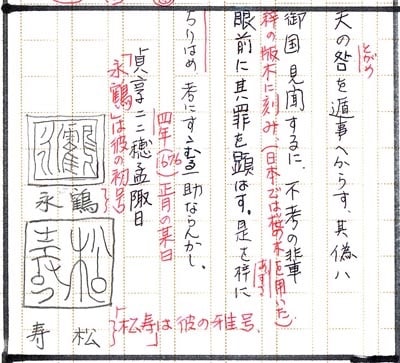 とがめ
天の咎を遁事へからす、其偽ハ
御国見聞するに、不考の輩
梓の版木に刻み、(日本では桜の木を用いた)
眼前に其罪を顕はす。是を梓に
あずさ
ちりはめ 考にすゝむる一助ならんかし。
四年(1676)正月の某日
貞享二二穂孟陬日
「永鶴」は彼の初号
永鶴
寿松
「松寿」は彼の雅号.